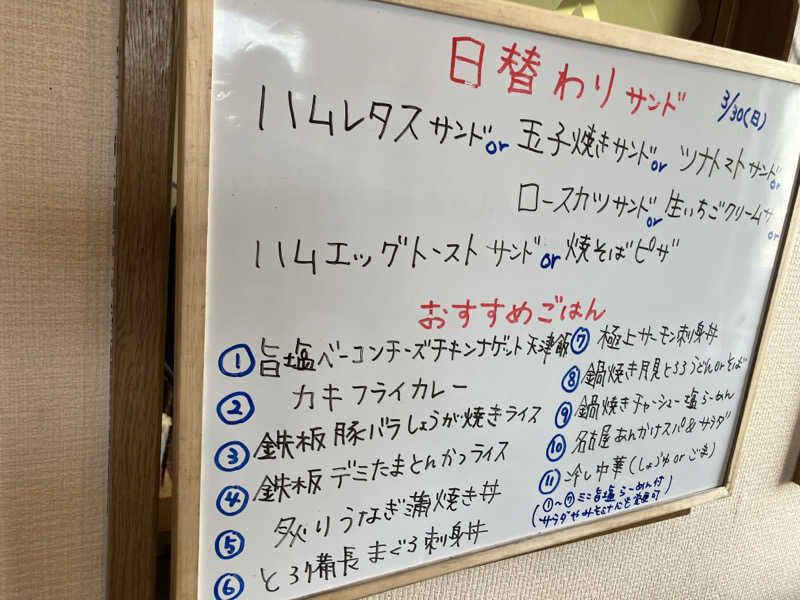 日替わりサンド 3/30(日)
ハムレタスサンドor 玉子焼きサンドor ツナトマトサンドor
ロースカツサンドor 生いちごクリームサ or
ハムエッグトーストサンドor 焼そばピザ
おすすめごはん
① 旨塩ベーコンチーズチキンナゲット天津飯
② カキフライカレー
③ 鉄板豚バラしょうが焼きライス
④ 鉄板デミたまとんかつライス
⑤ 炙りうなぎ蒲焼き丼
⑥ とろ備長まぐろ刺身丼
⑦ 極上サーモン刺身丼
⑧ 鍋焼き月見とろろうどんorそば
⑨ 鍋焼きチャーシュー塩らーめん
⑩ 名古屋あんかけスパ&サラダ
⑪ 冷し中華(しょうゆorごま)
(①〜⑦ミニ旨塩らーめん付)
(サラダやみそしるに変更可)